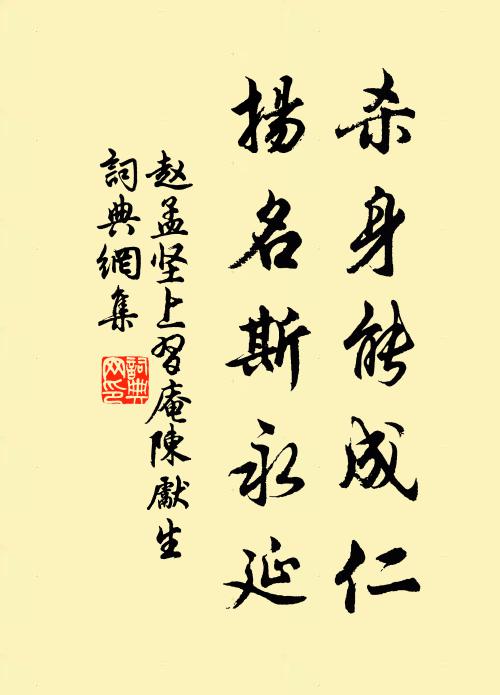 杀身能成仁
揚名斯永延
赵孟坚上習庵陳獻生
詞典網集
詞典
网印